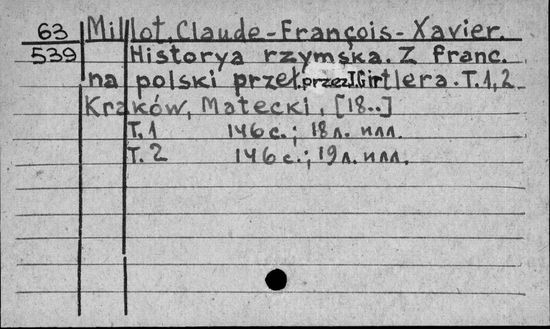 63 Millot, Claude-François-Xavier.
539 Historya rzymska. Z franc.
na polski przeł. przez J. Girtlera. T. 1, 2
Kraków, Matecki, [18..]
T. 1 146 с.; 18 л. илл.
T. 2 146 с.; 19 л. илл.